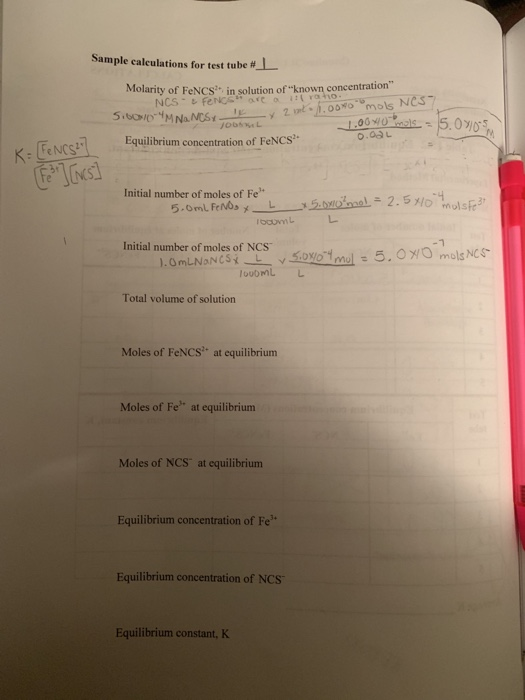 Sample calculations for test tube # 1
Molarity of FeNCS²⁺ in solution of "known concentration"
NCS⁻ & FeNCS²⁺ are a 1:1 ratio.
M NaNCS x 1L / 1000mL x 2 mL = 1.00x10⁻⁶ mols NCS⁻
1.00x10⁻⁶ mols / 0.02L = 5.0x10⁻⁵ M
Equilibrium concentration of FeNCS²⁺
K = [FeNCS²⁺] / [Fe³⁺][NCS⁻]
Initial number of moles of Fe³⁺
5.0mL FeNO₃ x L / 1000mL x 5.0x10⁻² mol / L = 2.5x10⁻⁴ mols Fe³⁺
Initial number of moles of NCS⁻
1.0mL NaNCS x L / 1000mL x 5.0x10⁻⁴ mol / L = 5.0x10⁻⁷ mols NCS⁻
Total volume of solution
Moles of FeNCS²⁺ at equilibrium
Moles of Fe³⁺ at equilibrium
Moles of NCS⁻ at equilibrium
Equilibrium concentration of Fe³⁺
Equilibrium concentration of NCS⁻
Equilibrium constant, K